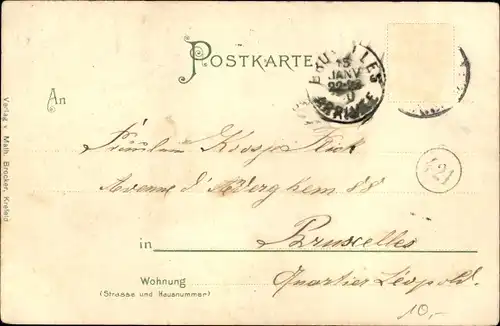 POSTKARTE
BRUXELLES
15
JANV
ARRIVÉE
An
Fräulein
Avenue d'Auderghem 88
421
in Bruxelles
Wohnung Quartier Léopold.
(Strasse und Hausnummer)
10,-
Verlag v. Math. Brocker, Krefeld